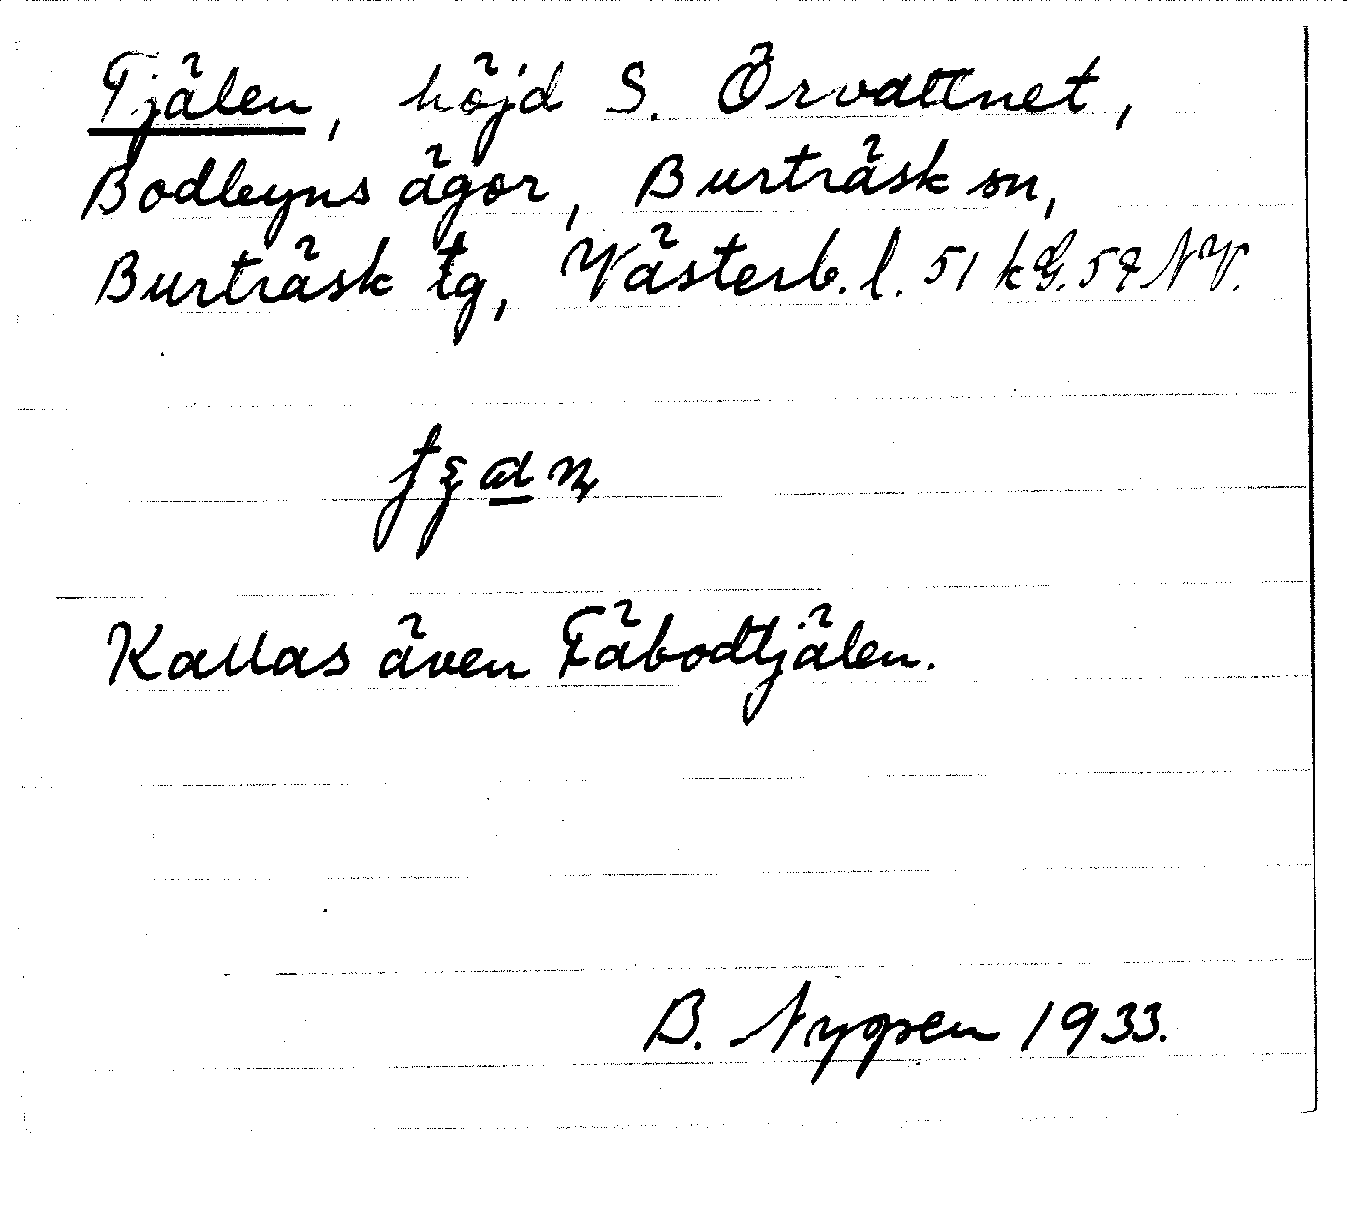 Tjälen, höjd S. Örvattnet,
Bodbyns ägor, Burträsk sn,
Burträsk tg, Västerb. l. 51 k G. 57 NV.
Kallas även Fäbodtjälen.
B. Nygren 1933.